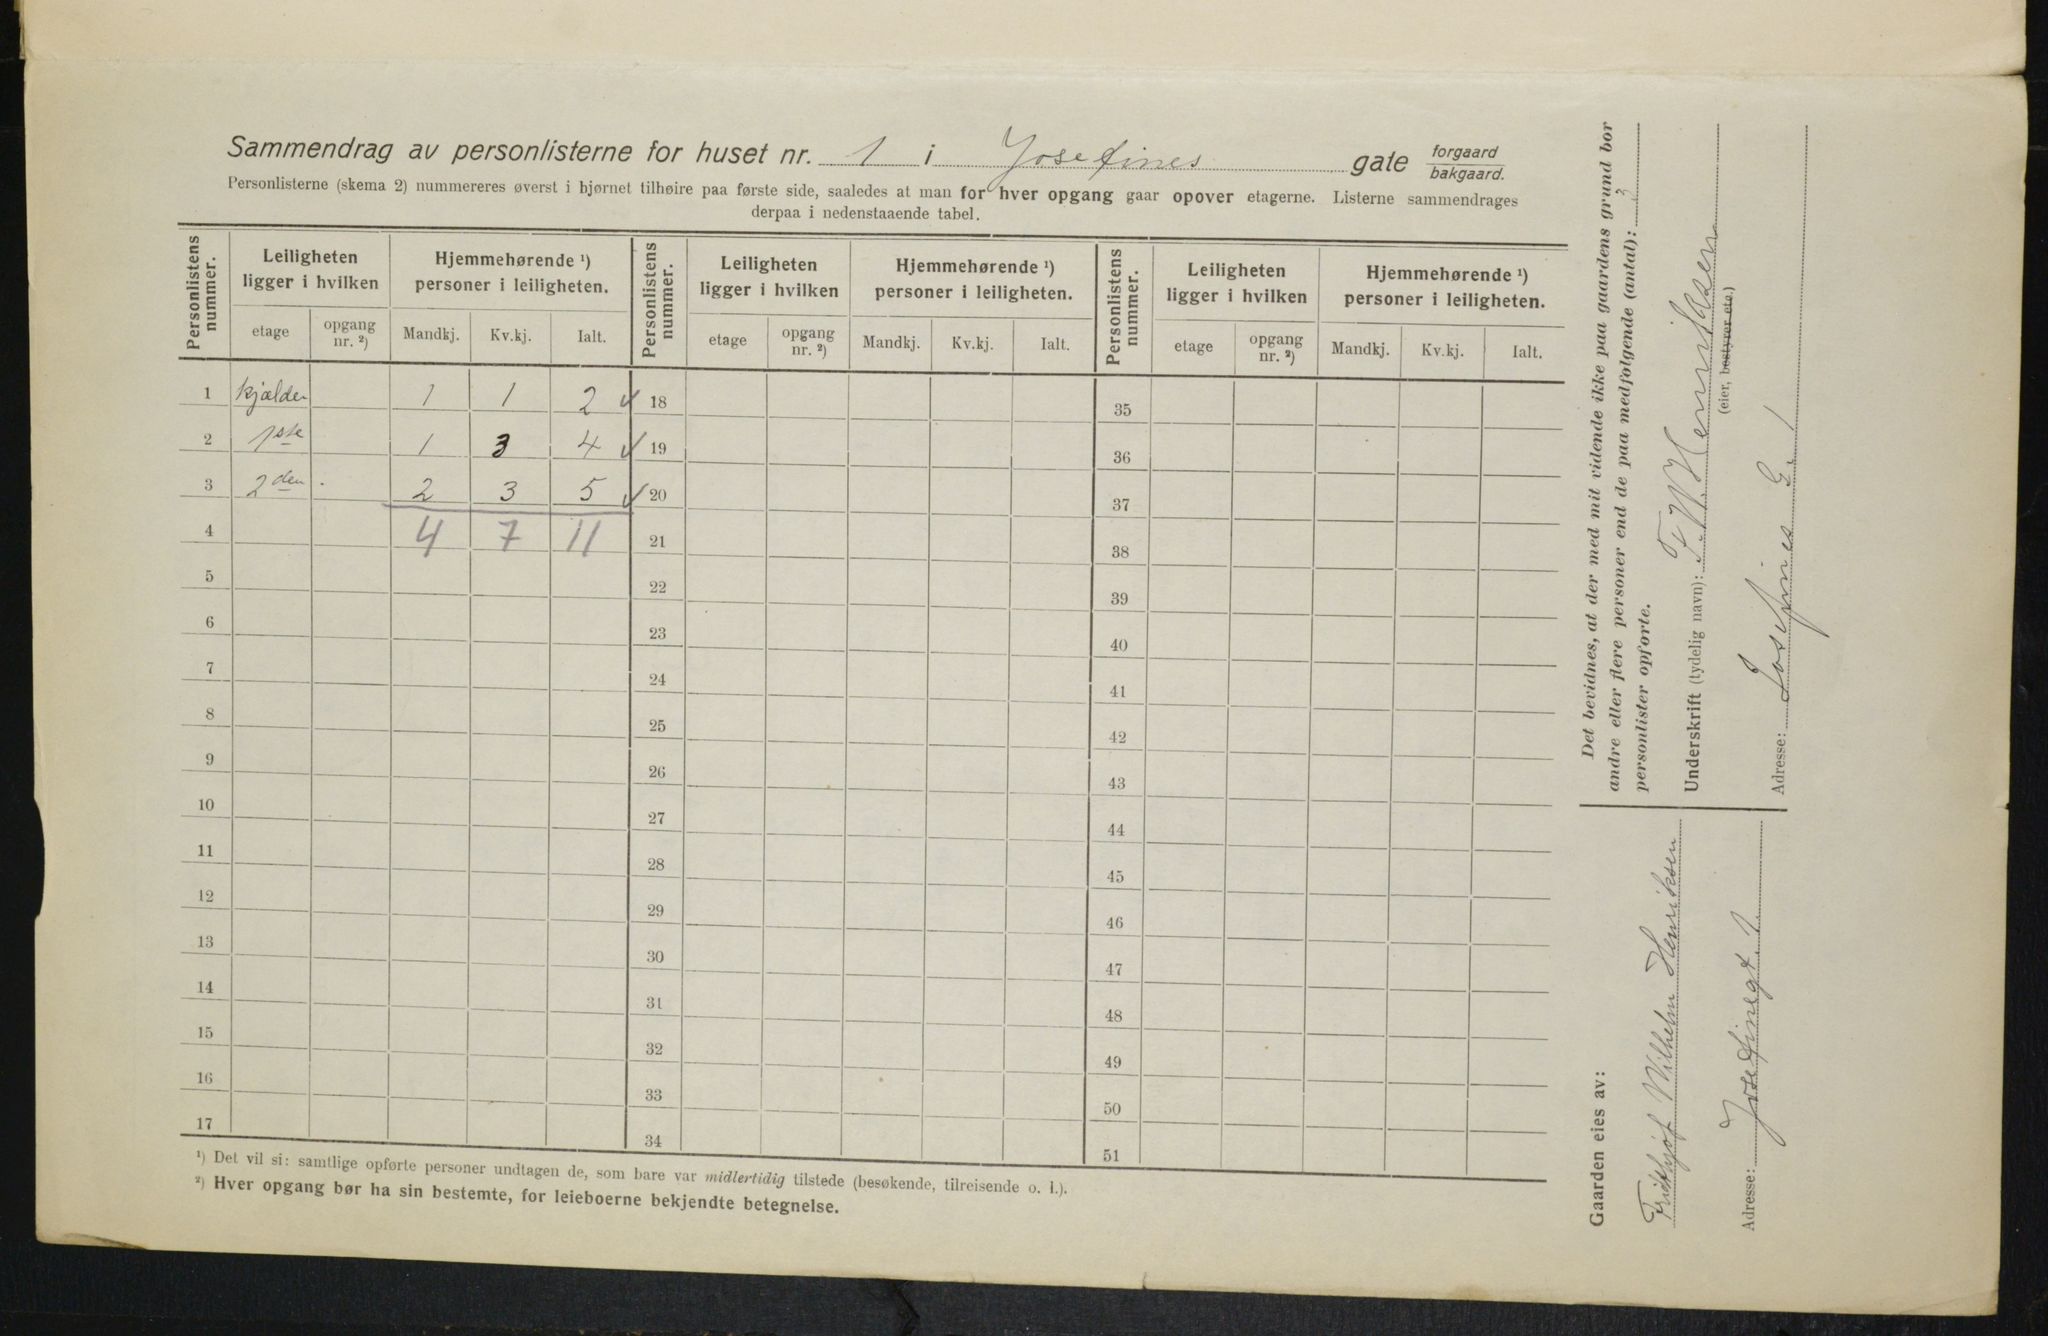 Sammendrag av personlisterne for huset nr. 1 i Josefines gate forgaard bakgaard.
Personlisterne (skema 2) nummereres øverst i hjørnet tilhøire paa første side, saaledes at man for hver opgang gaar opover etagerne. Listerne sammendrages
derpaa i nedenstaaende tabel.
Personlistens nummer. Leiligheten ligger i hvilken Hjemmehørende ¹) personer i leiligheten. Personlistens nummer. Leiligheten ligger i hvilken Hjemmehørende ¹) personer i leiligheten. Personlistens nummer. Leiligheten ligger i hvilken Hjemmehørende ¹) personer i leiligheten.
etage opgang nr. ²) Mandkj. Kv.kj. Ialt. etage opgang nr. ²) Mandkj. Kv.kj. Ialt. etage opgang nr. ²) Mandkj. Kv.kj. Ialt.
1 Kjælder 1 1 2 18 35
2 1ste 1 3 4 19 36
3 2den 2 3 5 20 37
4 4 7 11 21 38
5 22 39
6 23 40
7 24 41
8 25 42
9 26 43
10 27 44
11 28 45
12 29 46
13 30 47
14 31 48
15 32 49
16 33 50
17 34 51
¹) Det vil si: samtlige opførte personer undtagen de, som bare var midlertidig tilstede (besøkende, tilreisende o. l.).
²) Hver opgang bør ha sin bestemte, for leieboerne bekjendte betegnelse.
Det bevidnes, at der med mit vidende ikke paa gaardens grund bor
andre eller flere personer end de paa medfølgende (antal): 3
personlister opførte.
Underskrift (tydelig navn): F. W. Henriksen
(eier, bestyrer etc.)
Adresse: Josefines G. 1
Gaarden eies av:
Fridthjof Wilhelm Henriksen
Adresse: Josefinegt. 1.